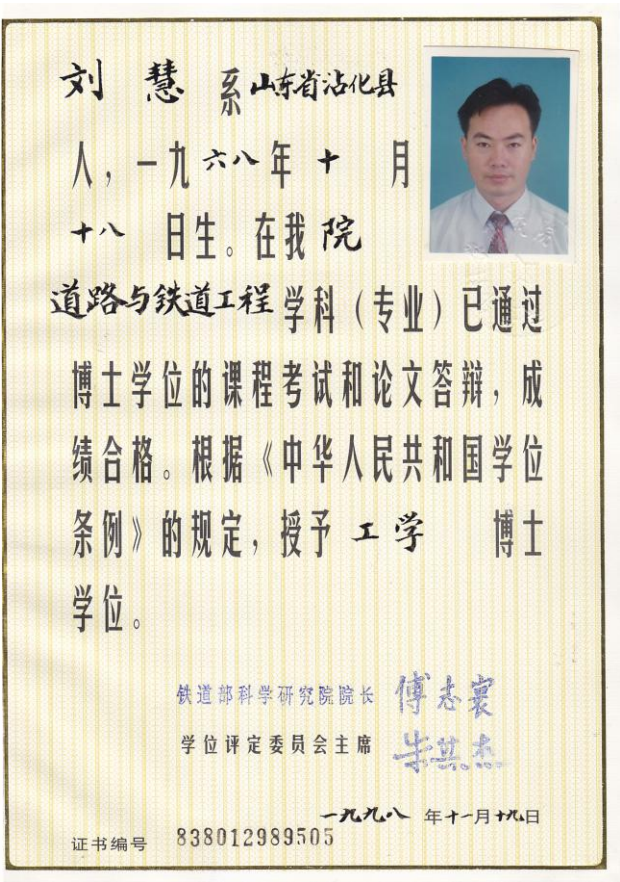 刘 慧 系山东省沾化县
人，一九六八年十 月
十八 日生。在我院
道路与铁道工程学科（专业）已通过
博士学位的课程考试和论文答辩，成
绩合格。根据《中华人民共和国学位
条例》的规定，授予 工学 博士
学位。
铁道部科学研究院院长 傅志寰
学位评定委员会主席 朱其杰
一九九八 年十一月十九日
证书编号 838012989505